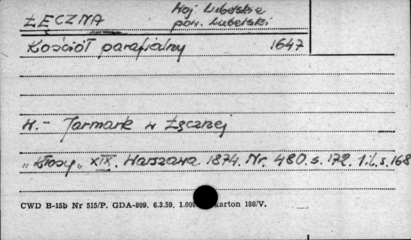 ŁĘCZNA Woj Lubelskie
pow. Lubelski
Kościół parafialny 1647
W. - Jarmark w Łęcznej
"Kłosy" XIX. Warszawa 1874. Nr. 480. s. 172. il. s. 168
CWD B-15b Nr 515/P. GDA-809. 6.3.59. 1.000 karton 180/V.